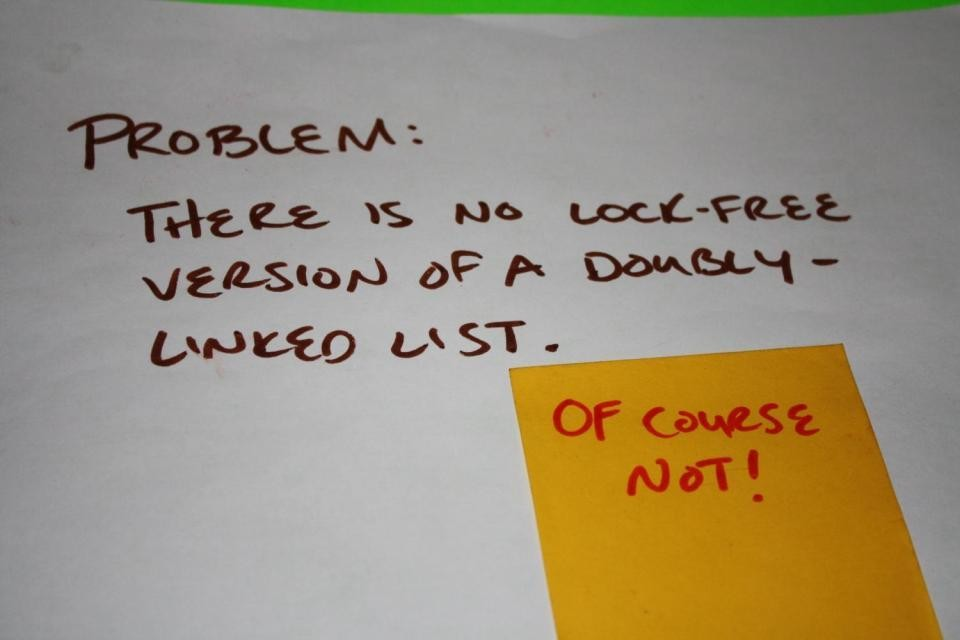 PROBLEM:
THERE IS NO LOCK-FREE
VERSION OF A DOUBLY-
LINKED LIST.
OF COURSE
NOT!